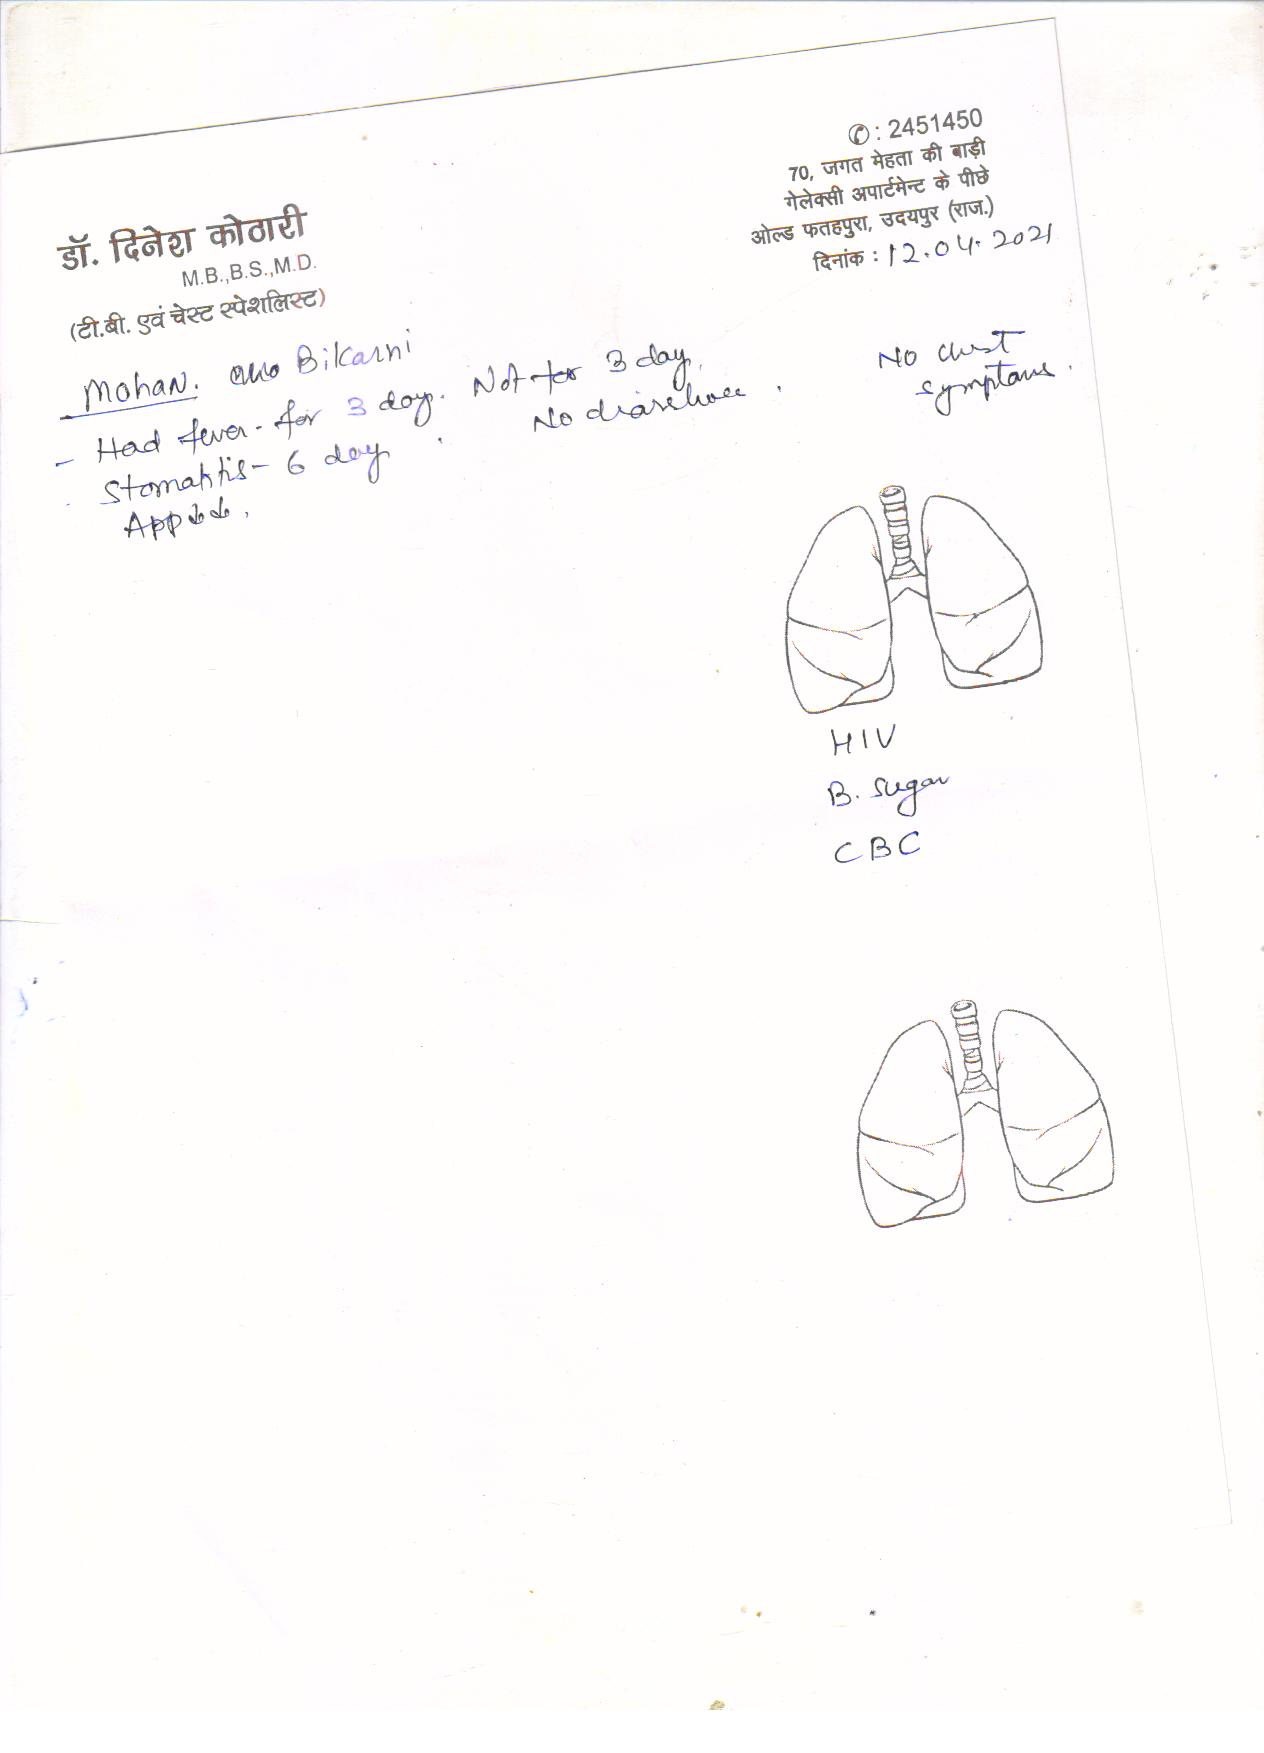 ✆ : 2451450
70, जगत मेहता की बाड़ी
गेलेक्सी अपार्टमेन्ट के पीछे
ओल्ड फतहपुरा, उदयपुर (राज.)
दिनांक : 12.04.2021
डॉ. दिनेश कोठारी
M.B.,B.S.,M.D.
(टी.बी. एवं चेस्ट स्पेशलिस्ट)
Mohan. Bikarni
- Had fever - for 3 day. Not for 3 day.
No chest
symptoms.
No diarrhoea.
Stomatitis - 6 day
App ↓↓.
HIV
B. Sugar
CBC